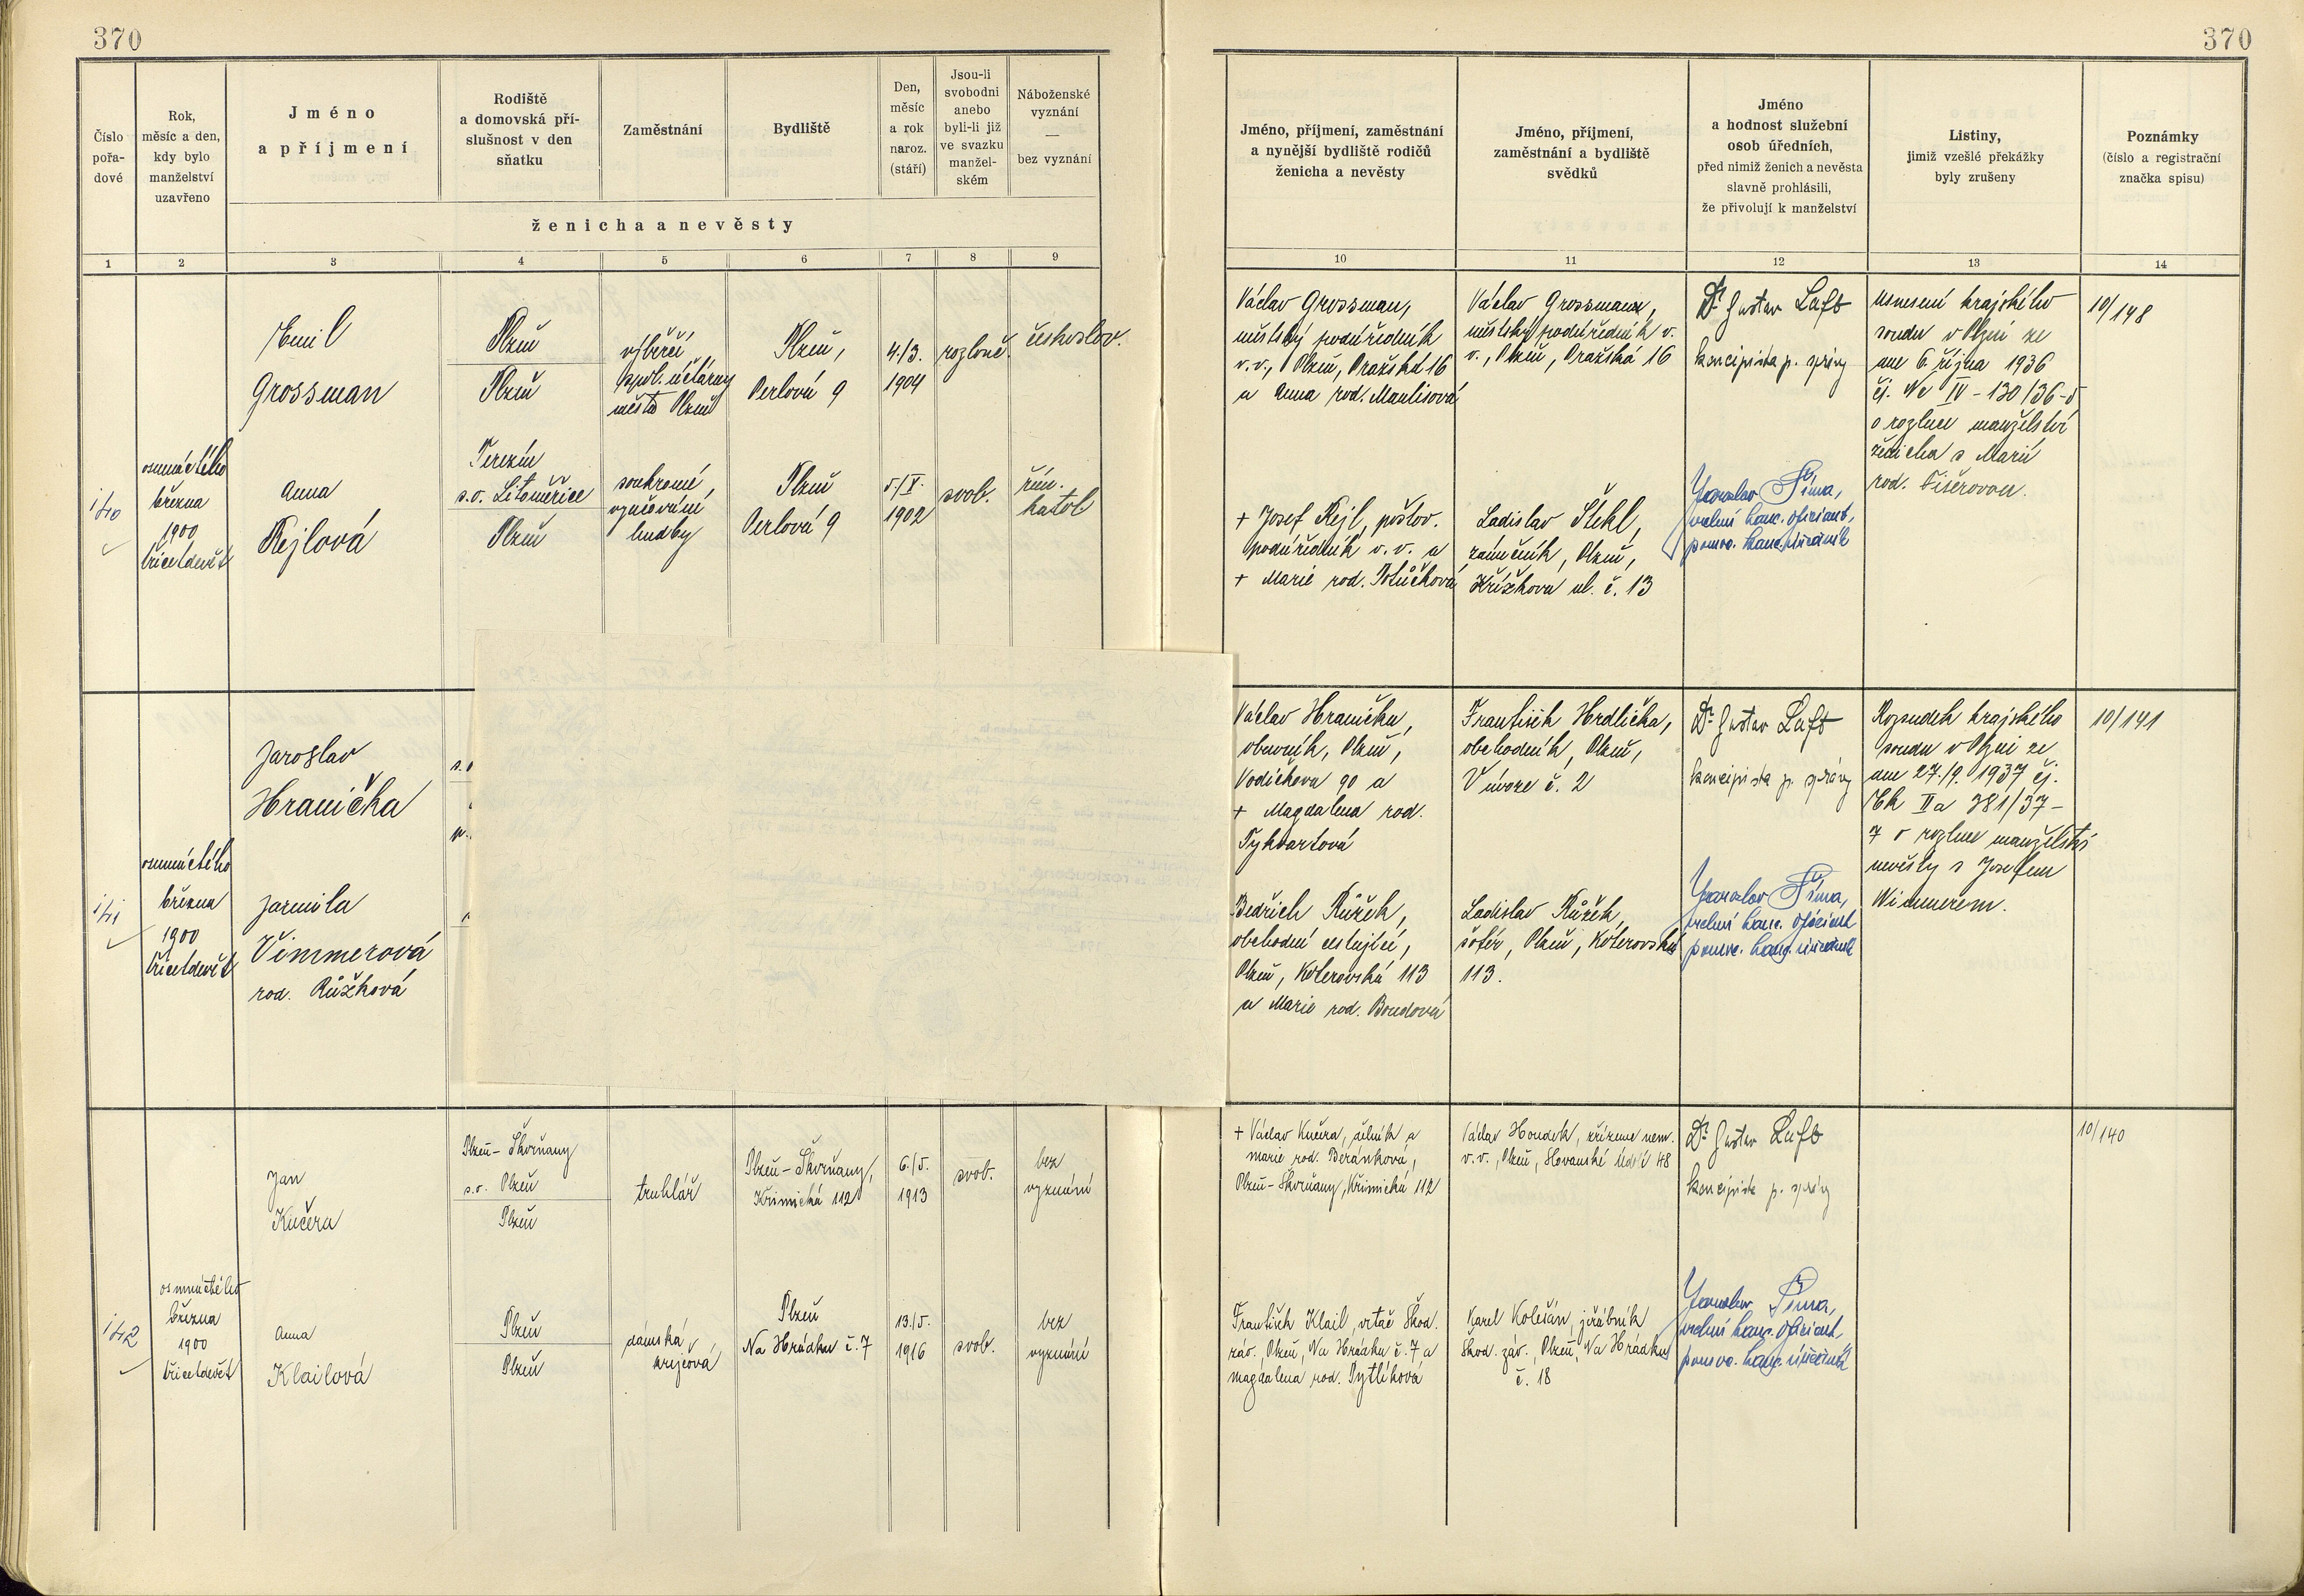 370
370
Číslo pořa-dové
Rok, měsíc a den, kdy bylo manželství uzavřeno
Jméno a příjmení
Rodiště a domovská pří-slušnost v den sňatku
Zaměstnání
Bydliště
Den, měsíc a rok naroz. (stáří)
Jsou-li svobodni anebo byli-li již ve svazku manžel-ském
Náboženské vyznání — bez vyznání
ženicha a nevěsty
Jméno, příjmení, zaměstnání a nynější bydliště rodičů ženicha a nevěsty
Jméno, příjmení, zaměstnání a bydliště svědků
Jméno a hodnost služební osob úředních, před nimiž ženich a nevěsta slavně prohlásili, že přivolují k manželství
Listiny, jimiž vzešlé překážky byly zrušeny
Poznámky (číslo a registrační značka spisu)
1 2 3 4 5 6 7 8 9 10 11 12 13 14
140
osmnáctého
března
1900
třicetdevět
Emil
Grossman
Plzeň
Plzeň
výběrčí
spol. účtárny
města Plzně
Plzeň,
Perlová 9
4./3.
1904
rozlouč.
českoslov.
Anna
Kejlová
Terezín
s.o. Litoměřice
Plzeň
soukromé
vyučování
hudby
Plzeň
Perlová 9
5/V.
1902
svob.
řím.
katol
Václav Grossman,
městský podúředník
v. v., Plzeň, Pražská 16
a Anna rod. Maulisová
+ Josef Kejl, poštov.
podúředník v. v. a
+ Marie rod. Potůčková
Václav Grossmann,
městský podúředník v.
v., Plzeň, Pražská 16
Ladislav Štekl,
zámečník, Plzeň,
Křížkova ul. č. 13
Dr. Gustav Luft
koncipista p. správy
Jaroslav Šíma,
velní kanc. oficiant,
pomoc. kanc. úředník
Usnesení krajského
soudu v Plzni ze
dne 6. října 1936
čj. Nc IV - 130/36-5
o rozluce manželství
ženicha s Marií
rod. Fišerovou.
10/148
141
osmnáctého
března
1900
třicetdevět
Jaroslav
Hranička
s.o
Jarmila
Vimmerová
rod. Růžková
Václav Hranička,
obuvník, Plzeň,
Vodičkova 90 a
+ Magdalena rod.
Tyhvartová
Bedřich Růžek,
obchodní cestující,
Plzeň, Koterovská 113
a Marie rod. Boudová
František Hrdlička,
obchodník, Plzeň,
V úvoze č. 2
Ladislav Růžek,
šofér, Plzeň, Koterovská
113.
Dr. Gustav Luft
koncipista p. správy
Jaroslav Šíma,
velní kanc. oficiant
pomoc. kanc. úředník
Rozsudek krajského
soudu v Plzni ze
dne 27./9. 1937 čj.
Ck IIa 381/37-
7 o rozluce manželství
nevěsty s Josefem
Wimmerem.
10/141
142
osmnáctého
března
1900
třicetdevět
Jan
Kučera
Plzeň-Skvrňany
s.o. Plzeň
Plzeň
truhlář
Plzeň-Skvrňany,
Křimická 112
6./5.
1913
svob.
bez
vyznání
Anna
Klailová
Plzeň
Plzeň
dámská
krejčová
Plzeň
Na Hrádku č. 7
13./5.
1916
svob.
bez
vyznání
+ Václav Kučera, dělník a
Marie rod. Beránková,
Plzeň-Skvrňany, Křimická 112
František Klail, vrtač Škod.
záv., Plzeň, Na Hrádku č. 7 a
Magdalena rod. Pytlíková
Václav Houdek, zřízenec nem.
v. v., Plzeň, Slovanské údolí 48
Karel Kolešán, jeřábník
Škod. záv., Plzeň, Na Hrádku
č. 18
Dr. Gustav Luft
koncipista p. správy
Jaroslav Šíma,
velní kanc. oficiant,
pomoc. kanc. úředník
10/140